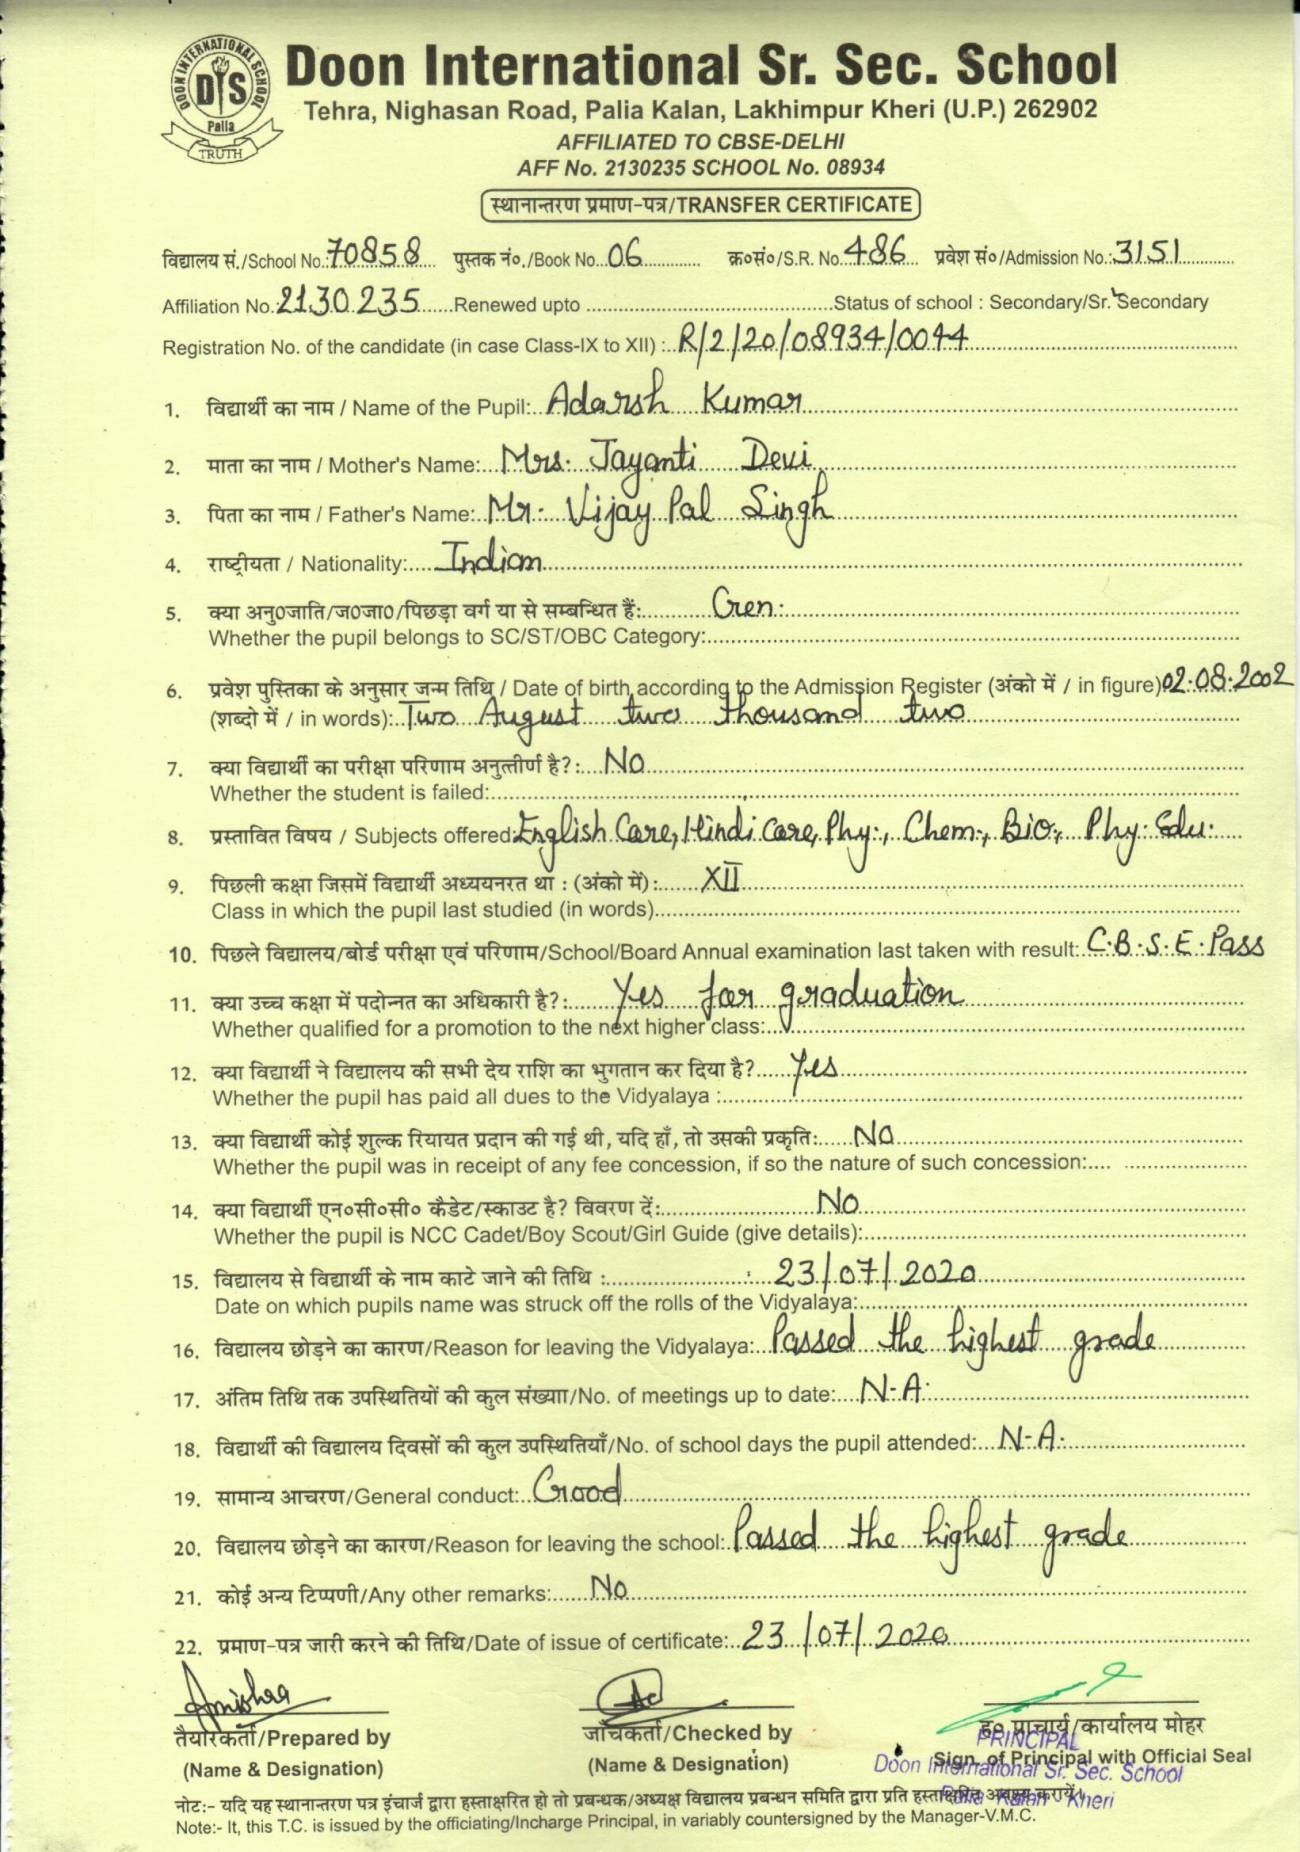 DOON INTERNATIONAL SCHOOL
DIS
Palia
TRUTH
Doon International Sr. Sec. School
Tehra, Nighasan Road, Palia Kalan, Lakhimpur Kheri (U.P.) 262902
AFFILIATED TO CBSE-DELHI
AFF No. 2130235 SCHOOL No. 08934
स्थानान्तरण प्रमाण-पत्र/TRANSFER CERTIFICATE
विद्यालय सं./School No.: 70858 पुस्तक नं०./Book No. 06 क्र०सं०/S.R. No. 486 प्रवेश सं०/Admission No.: 3151
Affiliation No.: 2130235 Renewed upto Status of school : Secondary/Sr. Secondary
Registration No. of the candidate (in case Class-IX to XII) : R/2/20/08934/0044
1. विद्यार्थी का नाम / Name of the Pupil: Adarsh Kumar
2. माता का नाम / Mother's Name: Mrs. Jayanti Devi
3. पिता का नाम / Father's Name: Mr. Vijay Pal Singh
4. राष्ट्रीयता / Nationality: Indian
5. क्या अनु0जाति/ज0जा0/पिछड़ा वर्ग या से सम्बन्धित हैं: Gen.
Whether the pupil belongs to SC/ST/OBC Category:
6. प्रवेश पुस्तिका के अनुसार जन्म तिथि / Date of birth according to the Admission Register (अंको में / in figure) 02.08.2002
(शब्दो में / in words): Two August two thousand two
7. क्या विद्यार्थी का परीक्षा परिणाम अनुत्तीर्ण है?: No
Whether the student is failed:
8. प्रस्तावित विषय / Subjects offered: English Core, Hindi Core, Phy., Chem., Bio., Phy. Edu.
9. पिछली कक्षा जिसमें विद्यार्थी अध्ययनरत था : (अंको में): XII
Class in which the pupil last studied (in words)
10. पिछले विद्यालय/बोर्ड परीक्षा एवं परिणाम/School/Board Annual examination last taken with result: C.B.S.E. Pass
11. क्या उच्च कक्षा में पदोन्नत का अधिकारी है?: Yes for graduation
Whether qualified for a promotion to the next higher class:
12. क्या विद्यार्थी ने विद्यालय की सभी देय राशि का भुगतान कर दिया है? Yes
Whether the pupil has paid all dues to the Vidyalaya :
13. क्या विद्यार्थी कोई शुल्क रियायत प्रदान की गई थी, यदि हाँ, तो उसकी प्रकृति: NO
Whether the pupil was in receipt of any fee concession, if so the nature of such concession:
14. क्या विद्यार्थी एन०सी०सी० कैडेट/स्काउट है? विवरण दें: No
Whether the pupil is NCC Cadet/Boy Scout/Girl Guide (give details):
15. विद्यालय से विद्यार्थी के नाम काटे जाने की तिथि : 23/07/2020
Date on which pupils name was struck off the rolls of the Vidyalaya:
16. विद्यालय छोड़ने का कारण/Reason for leaving the Vidyalaya: Passed the highest grade
17. अंतिम तिथि तक उपस्थितियों की कुल संख्याा/No. of meetings up to date: N.A.
18. विद्यार्थी की विद्यालय दिवसों की कुल उपस्थितियाँ/No. of school days the pupil attended: N.A.
19. सामान्य आचरण/General conduct: Good
20. विद्यालय छोड़ने का कारण/Reason for leaving the school: Passed the highest grade
21. कोई अन्य टिप्पणी/Any other remarks: No
22. प्रमाण-पत्र जारी करने की तिथि/Date of issue of certificate: 23/07/2020
तैयारकर्ता/Prepared by जाँचकर्ता/Checked by ह० प्राचार्य/कार्यालय मोहर
PRINCIPAL
(Name & Designation) (Name & Designation) Sign. of Principal with Official Seal
Doon International Sr. Sec. School
Palia Kalan Kheri
नोटः- यदि यह स्थानान्तरण पत्र इंचार्ज द्वारा हस्ताक्षरित हो तो प्रबन्धक/अध्यक्ष विद्यालय प्रबन्धन समिति द्वारा प्रति हस्ताक्षरित अवश्य करायें।
Note:- It, this T.C. is issued by the officiating/Incharge Principal, in variably countersigned by the Manager-V.M.C.